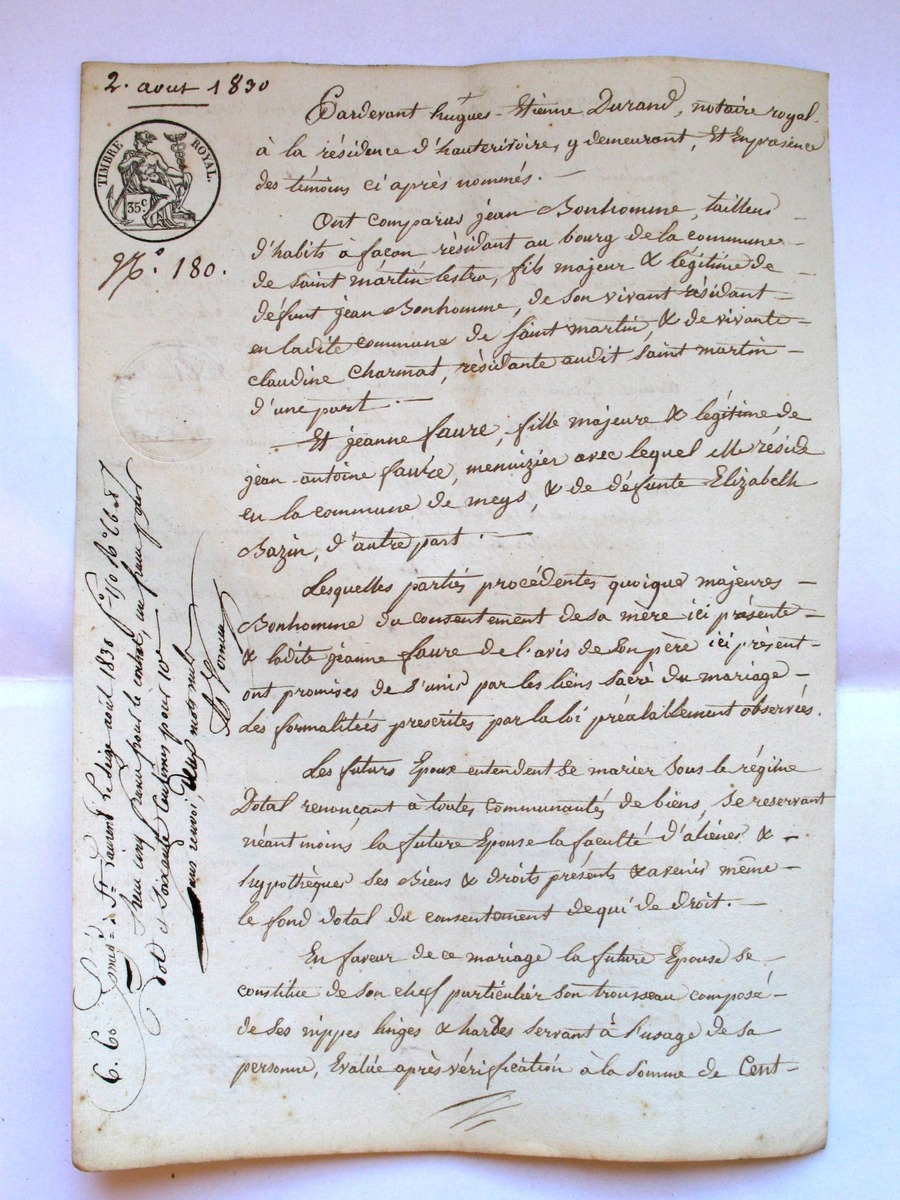 2. aout 1830
TIMBRE ROYAL.
35 c
N.° 180.
Pardevant hugues-Etienne Durand, notaire royal.
à la résidence d'hauterivoire, y demeurant, Et En présence
des témoins ci après nommés. -
Ont comparus jean Bonhomme, tailleur
d'habits à façon résidant au bourg de la commune
de saint martin lestra, fils majeur & légitime de
défunt jean Bonhomme, de son vivant résidant
en ladite commune de saint martin, & de vivante
claudine Charmat, résidante audit saint martin
d'une part. -
Et jeanne faure, fille majeure & légitime de
jean-antoine faure, menuizier avec lequel elle réside
en la commune de meys, & de défunte Elizabeth
Bazin, d'autre part. -
Lesquelles parties procédentes quoique majeures
Bonhomme du consentement de sa mère ici présente
& ladite jeanne faure de l'avis de son père ici présent
ont promises de s'unir par les liens sacré du mariage
les formalitées prescrites par la loi préalablement observées.
Les futurs Epoux entendent se marier sous le régime
Dotal renonçant à toutes communauté de biens, se reservant
néant moins la future Epouse la faculté d'aliéner &
hypothèquer ses Biens & droits présents & avenir même
le fond dotal du consentement de qui de droit. -
En faveur de ce mariage la future Epouse se
constitue de son chef particulier son trousseau composé
de ses nippes linges & hardes servant à l'usage de sa
personne, Evalué après vérification à la somme de Cent
à St Laurent le dix août 1830
cinq francs pour le contrat, un franc pour
dot et soixante centimes pour 10e
sans renvoi, deux mots nuls